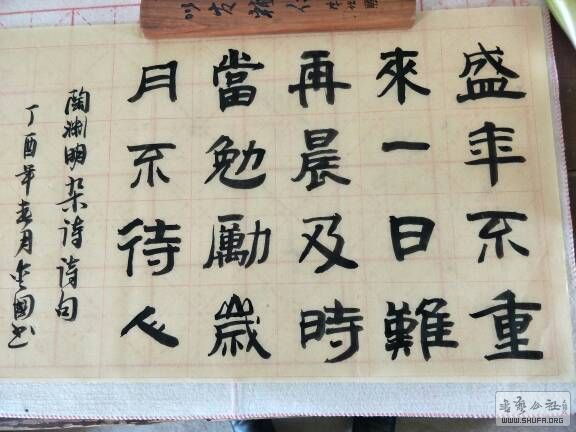 盛年不重
來一日難
再晨及時
當勉勵歲
月不待人
陶渊明杂诗诗句
丁酉年春月金國书
书艺公社
WWW.SHUFA.ORG